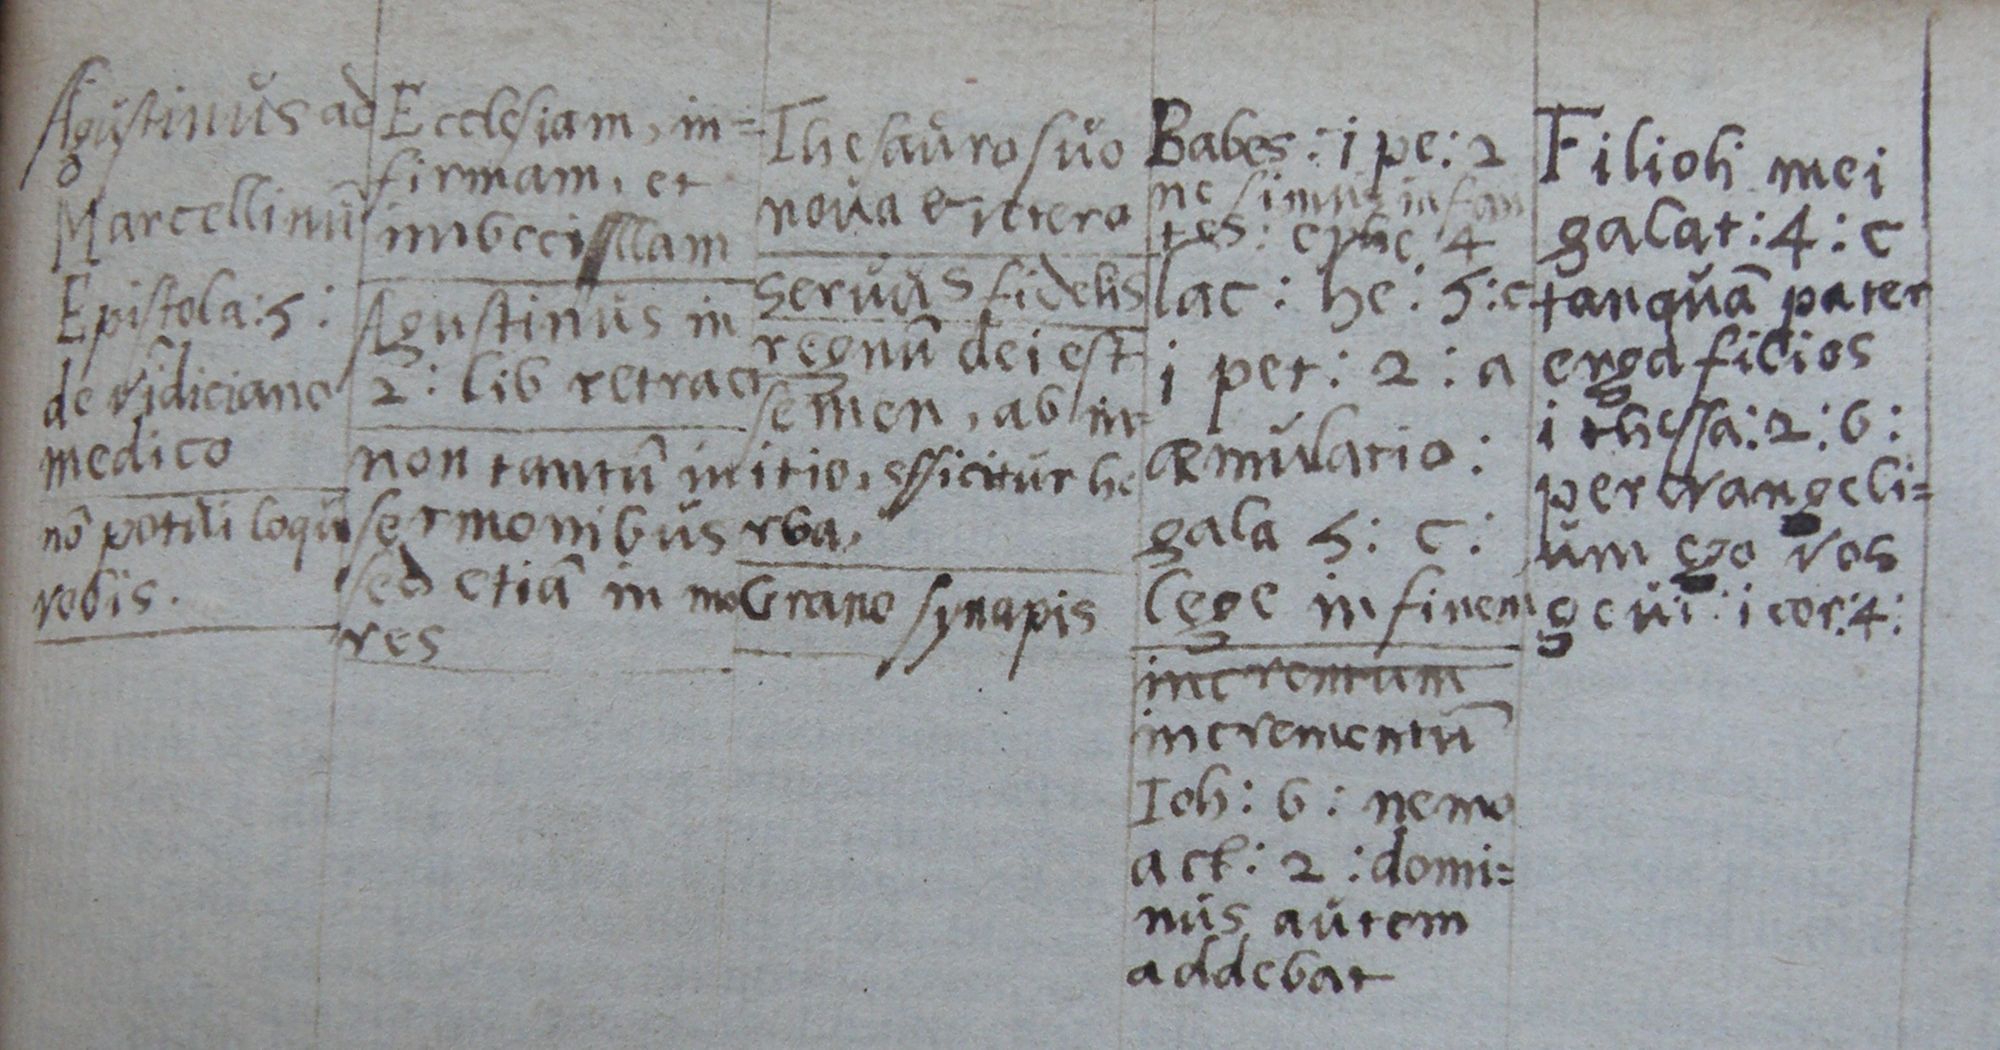 Agustinus ad
Marcellinū
Epistola: 5:
de vidiciano
medico
nō potui loqui
vobis.
Ecclesiam, in=
firmam, et
imbecillam
Agustinus in
2: lib retract
non tantū in
sermonibus
sed etiā in mo
res
Thesauro suo
nova & vetera
servus fidelis
regnū dei est
semen, ab in-
itio, efficitur he
rba,
Grano synapis
Babes: i pe: 2
ne simus infan
tes: ephe 4
lac: he: 5: c
i pet: 2: a
æmulatio:
gala 5: c:
lege in finem
incremtum
incrementū
Ioh: 6: nemo
act: 2: domi=
nus autem
addebat
Filioli mei
galat: 4: c
tanquā pater
erga filios
i thessa: 2: 6:
per evangeli=
um ego vos
genui: i cor: 4: